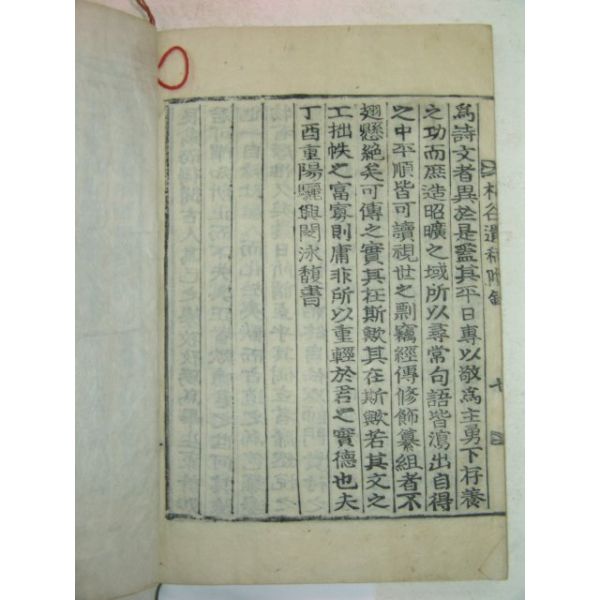 爲詩文者異於是盖其平日專以敬爲主勇下存養
之功而庶造昭曠之域所以尋常句語皆瀉出自得
之中平順皆可讀視世之剽竊經傳修飾纂組者不
翅懸絶矣可傳之實其在斯歟其在斯歟若其文之
工拙帙之富寡則庸非所以重輕於君之實德也夫
丁酉重陽驪興閔泳馥書
谷遺稿附錄